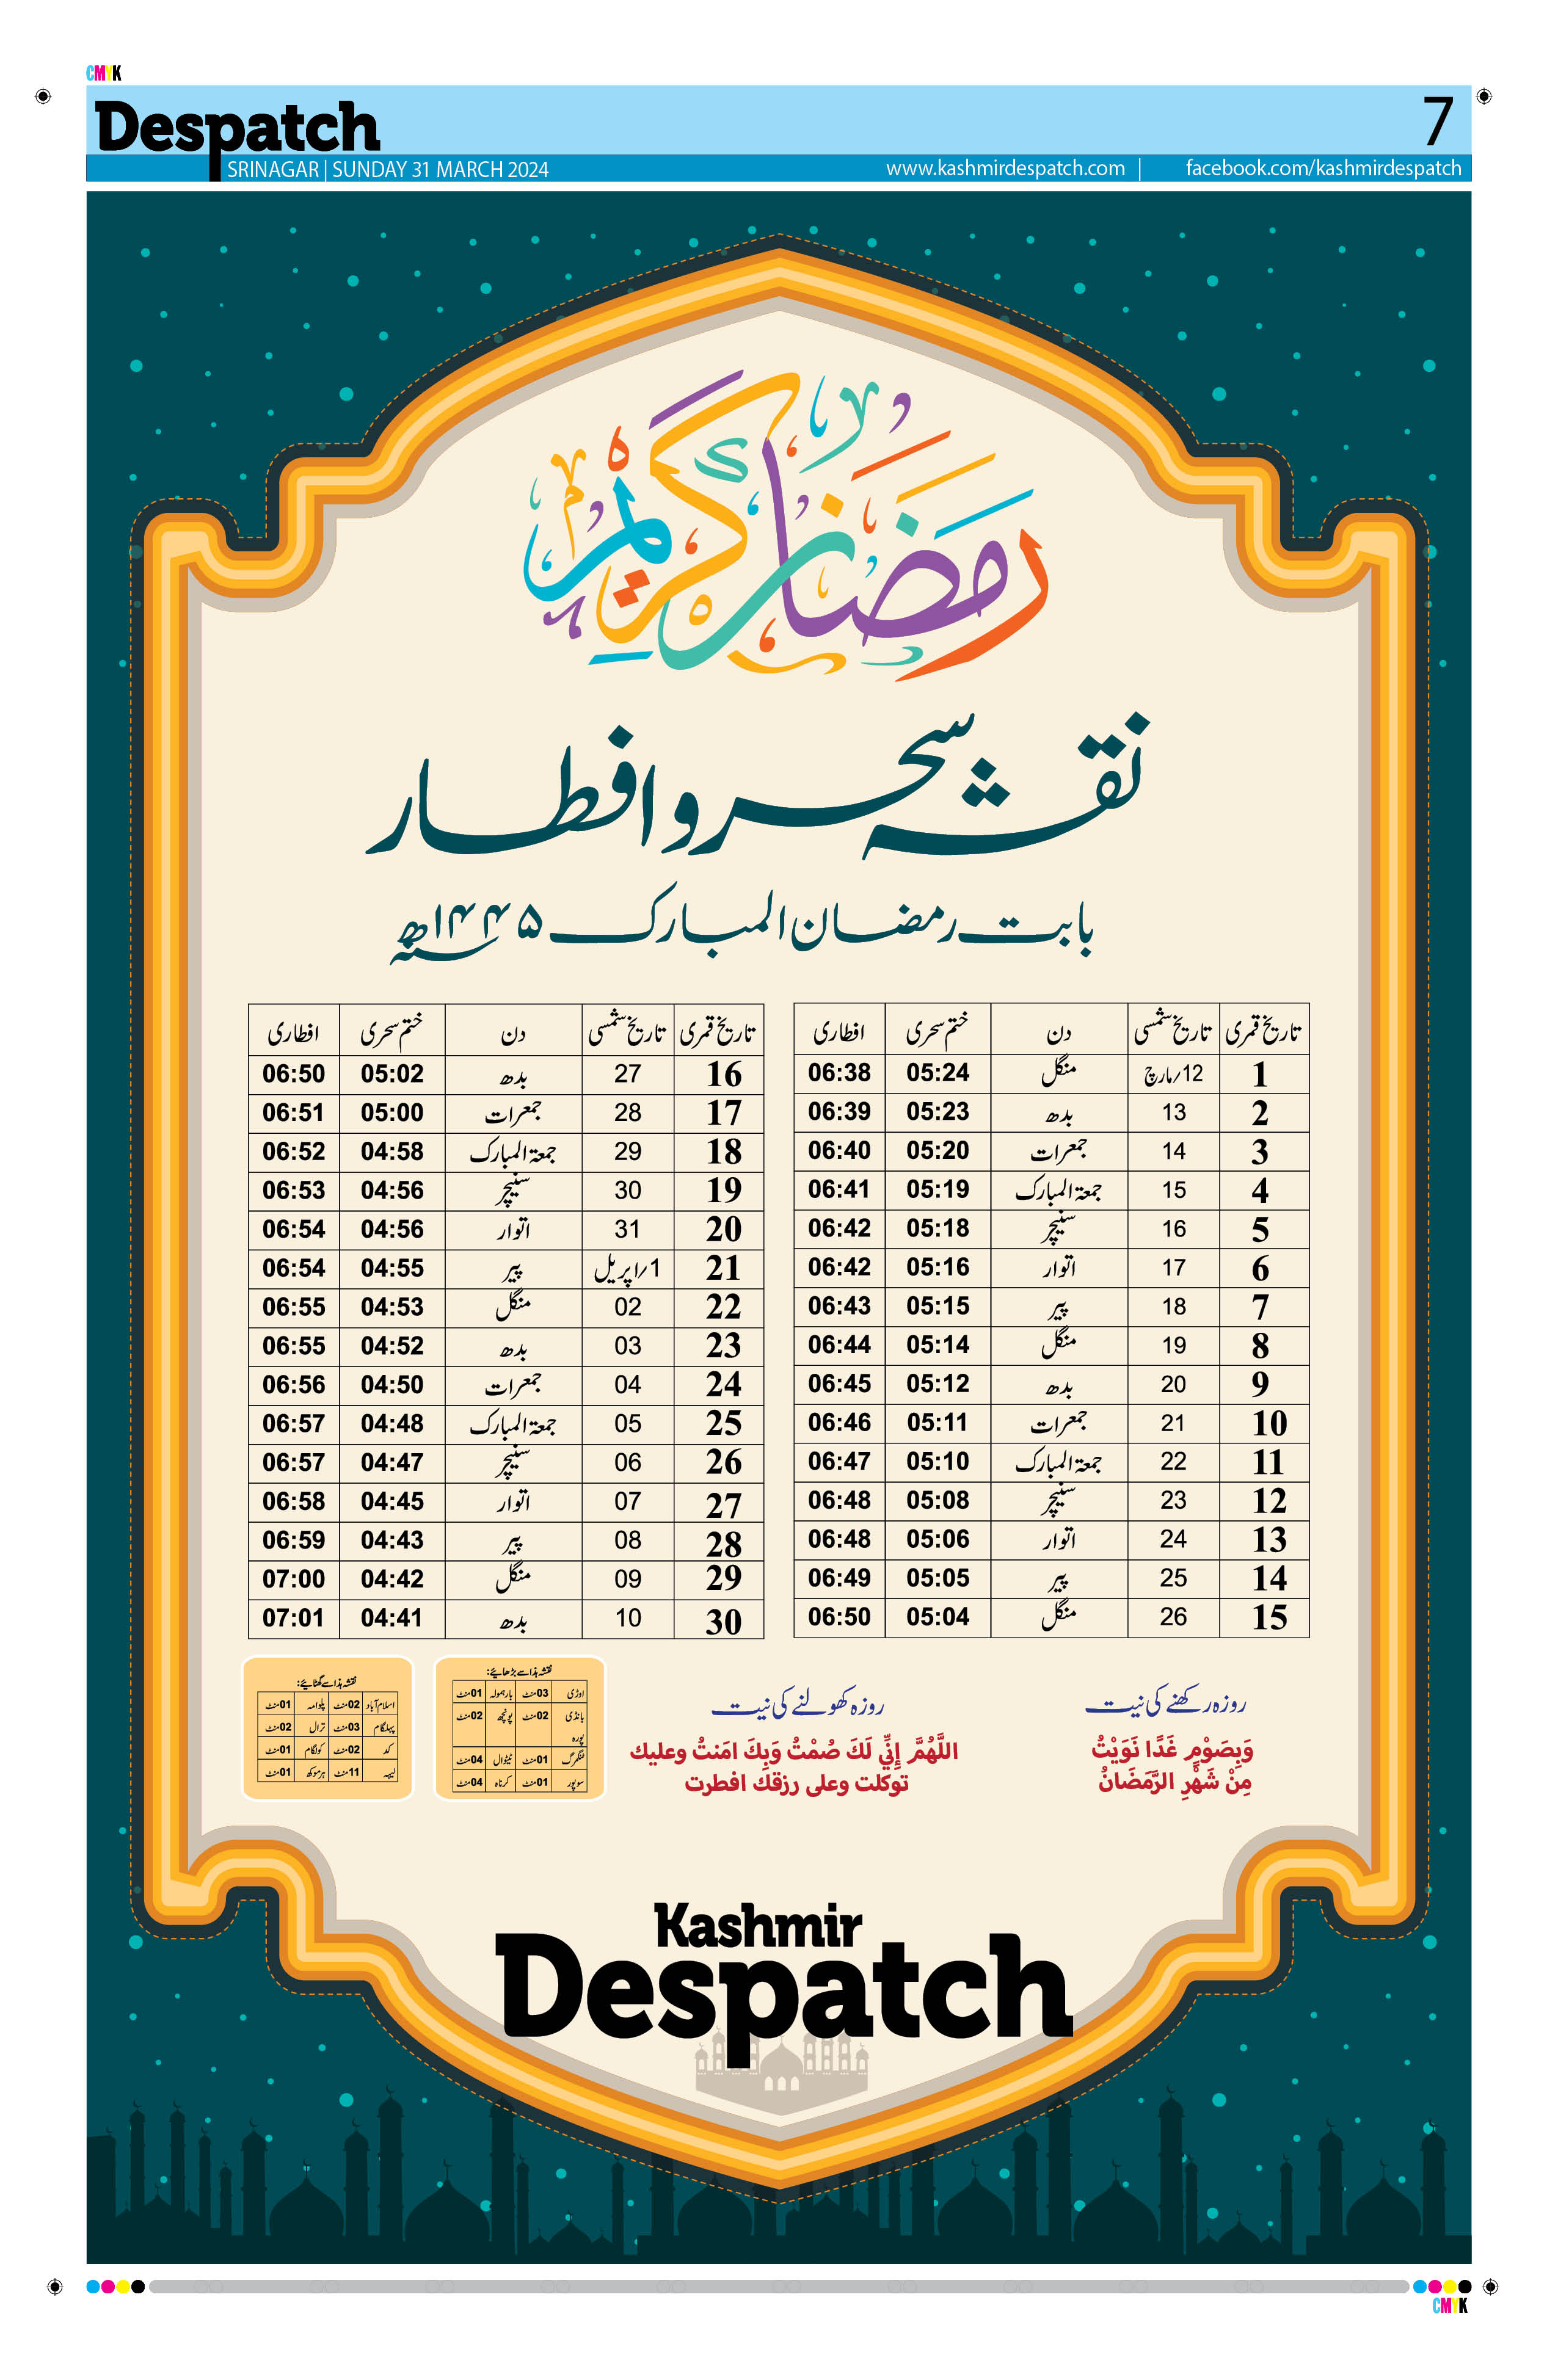 CMYK
Despatch
7
SRINAGAR | SUNDAY 31 MARCH 2024
www.kashmirdespatch.com |
facebook.com/kashmirdespatch
رمضان كريم
نقشہ سحر و افطار
بابت رمضان المبارک ۱۴۴۵ھ
تاریخ قمری تاریخ شمسی دن ختم سحری افطاری
1 12/مارچ منگل 05:24 06:38
2 13 بدھ 05:23 06:39
3 14 جمعرات 05:20 06:40
4 15 جمعۃ المبارک 05:19 06:41
5 16 سنیچر 05:18 06:42
6 17 اتوار 05:16 06:42
7 18 پیر 05:15 06:43
8 19 منگل 05:14 06:44
9 20 بدھ 05:12 06:45
10 21 جمعرات 05:11 06:46
11 22 جمعۃ المبارک 05:10 06:47
12 23 سنیچر 05:08 06:48
13 24 اتوار 05:06 06:48
14 25 پیر 05:05 06:49
15 26 منگل 05:04 06:50
تاریخ قمری تاریخ شمسی دن ختم سحری افطاری
16 27 بدھ 05:02 06:50
17 28 جمعرات 05:00 06:51
18 29 جمعۃ المبارک 04:58 06:52
19 30 سنیچر 04:56 06:53
20 31 اتوار 04:56 06:54
21 1/اپریل پیر 04:55 06:54
22 02 منگل 04:53 06:55
23 03 بدھ 04:52 06:55
24 04 جمعرات 04:50 06:56
25 05 جمعۃ المبارک 04:48 06:57
26 06 سنیچر 04:47 06:57
27 07 اتوار 04:45 06:58
28 08 پیر 04:43 06:59
29 09 منگل 04:42 07:00
30 10 بدھ 04:41 07:01
روزہ رکھنے کی نیت
وَبِصَوْمِ غَدًا نَوَيْتُ
مِنْ شَهْرِ الرَّمَضَانُ
روزہ کھولنے کی نیت
اللَّهُمَّ إِنِّي لَكَ صُمْتُ وَبِكَ امَنتُ وعليك
توكلت وعلى رزقك افطرت
نقشہ ہذا سے بڑھائیے:
اوڑی 03منٹ بارہمولہ 01منٹ
بانڈی پورہ 02منٹ پونچھ 02منٹ
گلمرگ 01منٹ ٹیٹوال 04منٹ
سوپور 01منٹ کرناہ 04منٹ
نقشہ ہذا سے گھٹائیے:
اسلام آباد 02منٹ پلوامہ 01منٹ
پہلگام 03منٹ ترال 02منٹ
کد 02منٹ کولگام 01منٹ
لیہہ 11منٹ ہرموکھ 01منٹ
Kashmir
Despatch
CMYK